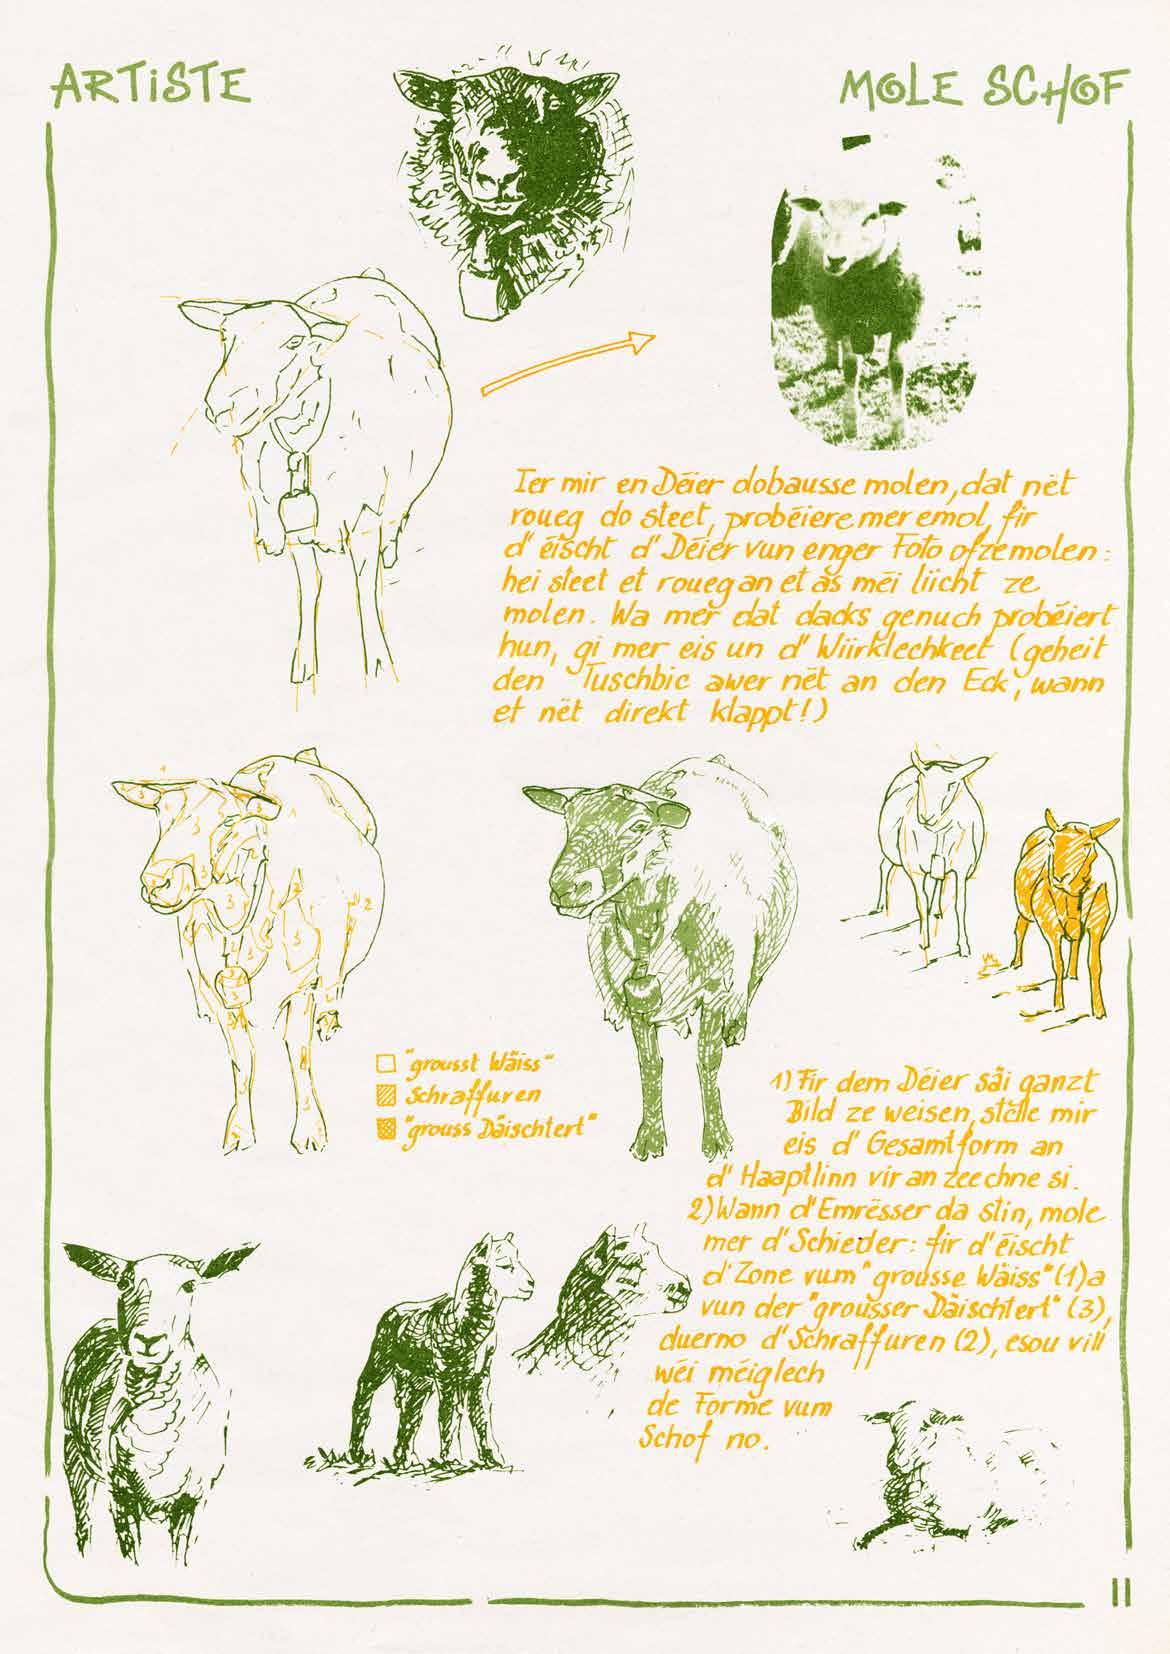 ARTiSTE
MOLE SCHOF
Ier mir en Déier dobausse molen, dat nët
roueg do steet, probéiere mer emol, fir
d'éischt d'Déier vun enger Foto ofzemolen:
hei steet et roueg an et as méi liicht ze
molen. Wa mer dat dacks genuch probéiert
hun, gi mer eis un d'Wiirklechkeet (geheit
den Tuschbic awer nët an den Eck, wann
et nët direkt klappt!)
"grousst Wäiss"
Schraffuren
"grouss Däischtert"
1) Fir dem Déier säi ganzt
Bild ze weisen, stelle mir
eis d'Gesamtform an
d'Haaptlinn vir an zeechne si.
2) Wann d'Emrësser da stin, mole
mer d'Schieder: fir d'éischt
d'Zone vum "grousse Wäiss" (1) a
vun der "grousser Däischtert" (3),
duerno d'Schraffuren (2), esou vill
wéi méiglech
de Forme vum
Schof no.
11